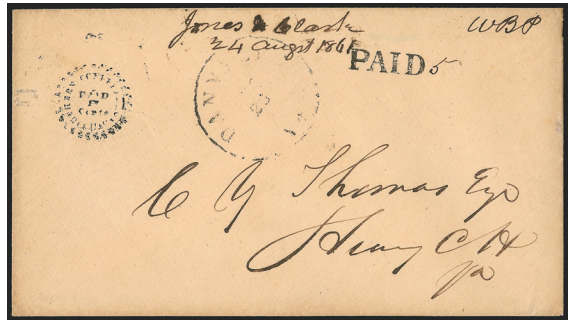 Jones & Clark
24 Augst 1861
WBP
PAID 5
DANV
VA
PAID
5
CENTS
C Y Thomas Esq
Henry C H
Va